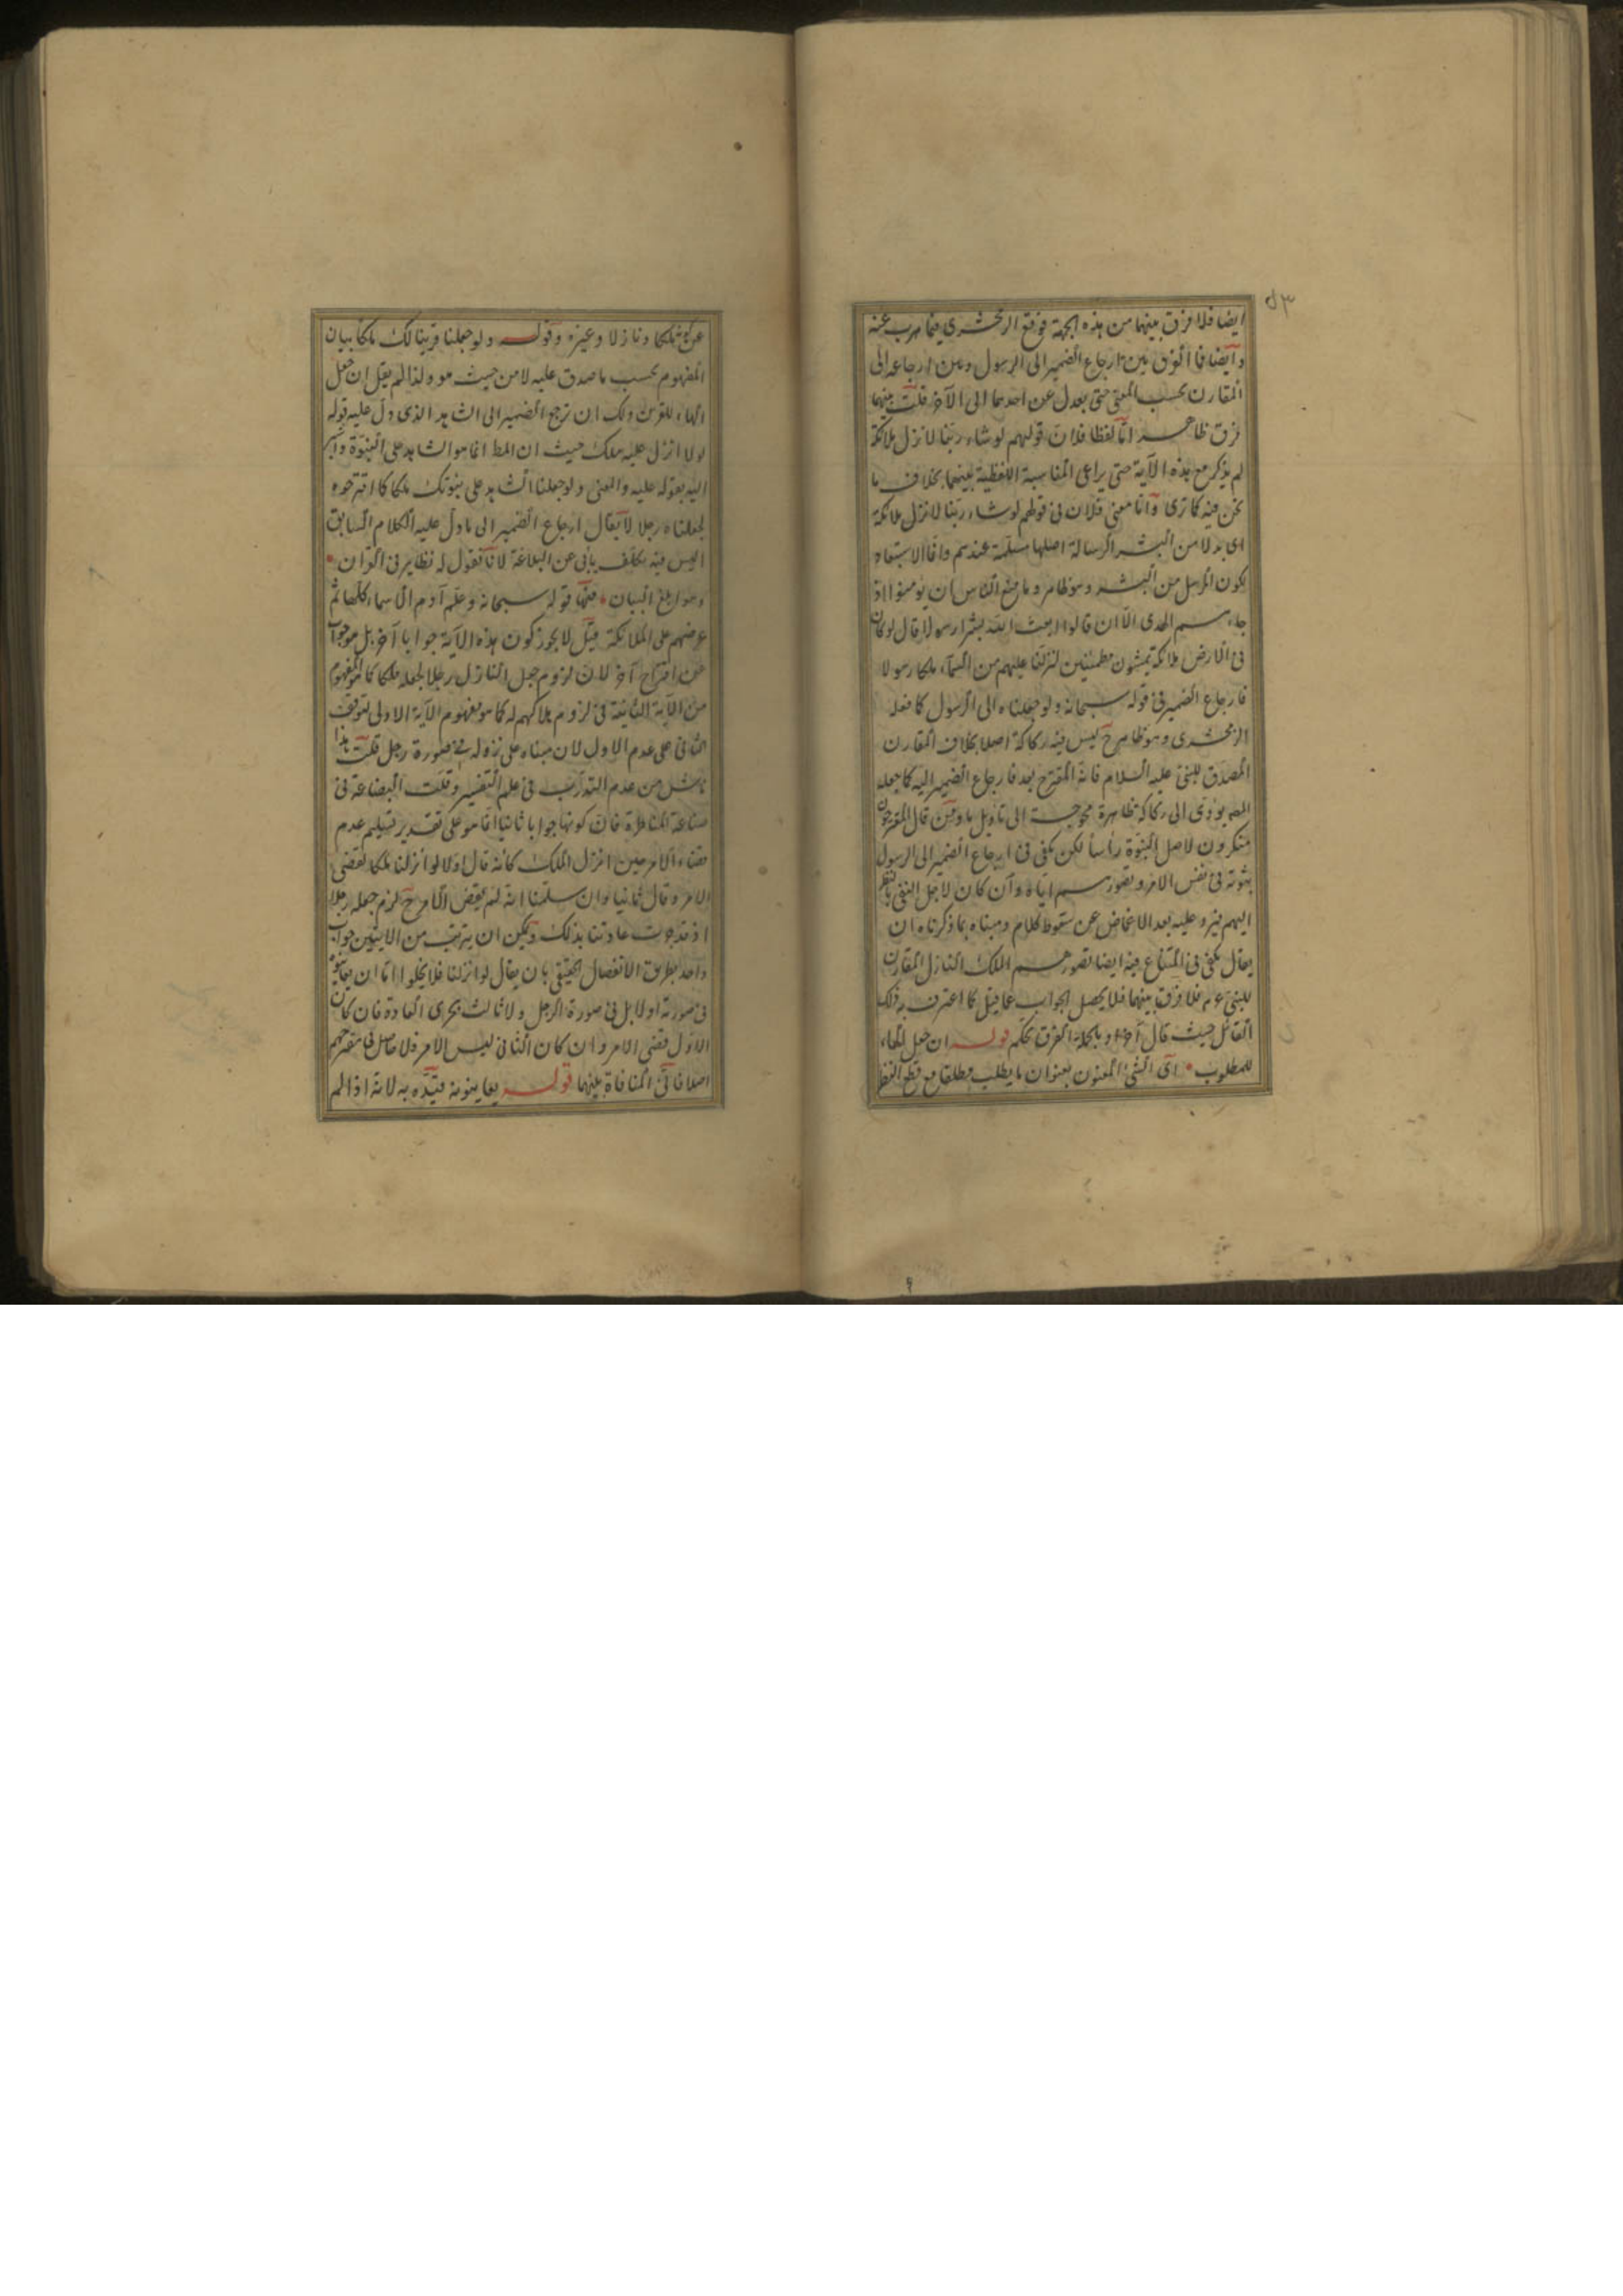 ٥٣
ايضا فلا فرق بينهما من هذه الجهة فوقع الزمخشري فيما هرب عنه
وايضا فما الفرق بين ارجاع الضمير الى الرسول وبين ارجاعه الى
المقارن بحسب المعنى حتى يعدل عن احدهما الى الآخر قلت بينهما
فرق ظاهر اما لفظا فلان قولهم لو شاء ربنا لانزل ملائكة
لم يذكر مع هذه الآية حتى يراعى المناسبة اللفظية بينهما بخلاف ما
نحن فيه كما ترى واما معنى فلان في قولهم لو شاء ربنا لانزل ملائكة
اى بدلا من البشر الرسالة اصلها مسلمة عندهم وانما الاستبعاد
لكون المرسل من البشر وهو ظاهر وما منع الناس ان يؤمنوا اذ
جاءهم الهدى الا ان قالوا ابعث الله بشرا رسولا قال لو كان
فى الارض ملائكة يمشون مطمئنين لنزلنا عليهم من السماء ملكا رسولا
فارجاع الضمير فى قوله سبحانه ولو جعلناه الى الرسول كما فعله
الزمخشرى وهو ظاهر ح ليس فيه ركاكة اصلا بخلاف المقارن
المصدق للنبى عليه السلام فانه المقترح بعد فارجاع الضمير اليه كما جعله
المص يؤدى الى ركاكة ظاهرة محوجة الى تأويل ما ومن قال المقترحون
منكرون لاصل النبوة رأسا لكن يكفى فى ارجاع الضمير الى الرسول
ثبوته فى نفس الامر وتصورهم اياه وان كان لاجل النفى بالنظر
اليهم فيرد عليه بعد الاغماض عن سقوط كلامه ومبناه بما ذكرناه ان
يقال يكفى فى المتنازع فيه ايضا تصورهم الملك النازل المقارن
للنبى عم فلا فرق بينهما فلا يحصل الجواب عما قيل كما اعترف به ذلك
القائل حيث قال آخرا وبالجملة الفرق تحكم قوله ان جعل الهاء
للمطلوب اى الشئ المعنون بعنوان ما يطلب مطلقا مع قطع النظر
عن كونه ملكا ونازلا وغيره وقوله ولو جعلنا قرينا لك ملكا بيان
المفهوم بحسب ما صدق عليه لا من حيث هو ولذا لم يقل ان جعل
الهاء للقرين ولك ان ترجع الضمير الى الشاهد الذى دل عليه قوله
لولا انزل عليه ملك حيث ان المط انما هو الشاهد على النبوة
اليه بقوله عليه والمعنى ولو جعلنا الشاهد على نبوتك ملكا كما اقترحوه
لجعلناه رجلا لا يقال ارجاع الضمير الى ما دل عليه الكلام السابق
اليس فيه تكلف يأبى عن البلاغة لانا نقول له نظاير فى القرآن
وهو ابلغ البيان فمنها قوله سبحانه وعلم آدم الاسماء كلها ثم
عرضهم على الملائكة قيل لا يجوز كون هذه الآية جوابا آخر بل هو جواب
عن اقتراح آخر لان لزوم جعل النازل رجلا لجعله ملكا كما هو المفهوم
من الآية الثانية فى لزوم هلاكهم له كما هو مفهوم الآية الاولى لتوقف
الثانى على عدم الاول لان مبناه على نزوله فى صورة رجل قلت هذا
ناش من عدم التدرب فى علم التفسير وقلت البضاعة فى
صناعة المناظرة فان كونها جوابا ثانيا انما هو على تقدير تسليم عدم
قضاء الامر حين انزل الملك كأنه قال اولا لو انزلنا ملكا لقضى
الامر وقال ثانيا وان سلمنا انه لم يقض الامر ح لزم جعله رجلا
اذ قد جرت عادتنا بذلك ويمكن ان يترتب من الايتين جواب
واحد بطريق الانفصال الحقيقى بان يقال لو انزلنا فلا يخلوا اما ان يعاينوه
فى صورته اولا بل فى صورة الرجل ولا ثالث بمجرى العادة فان كان
الاول قضى الامر وان كان الثانى ليس الامر فلا حاصل فى مقترحهم
اصلا فانى المنافاة بينهما قوله يعاينونه قيده به لانه اذا لم